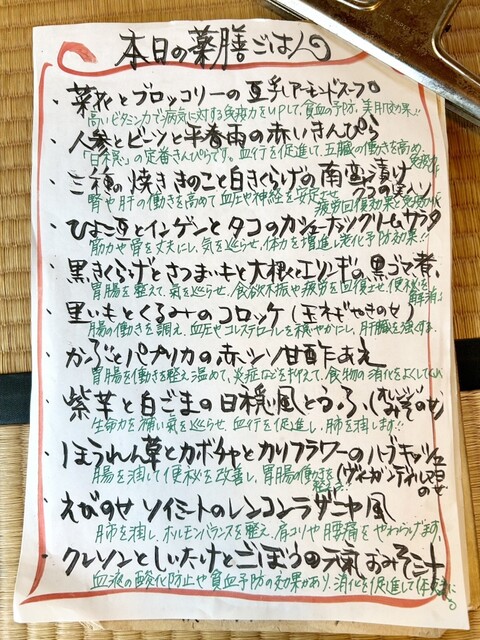 本日の薬膳ごはん
・菜花とブロッコリーの豆乳アーモンドスープ
高いビタミン力で病気に対する免疫力をUPして、貧血の予防、美肌効果!!
・人参とビーツと半春雨の赤いきんぴら
「日穏」の定番きんぴらです。血行を促進して、五臓の働きを高め、免疫力UP
・三種の焼ききのこと白きくらげの南蛮漬け
クコの実入り
腎や肝の働きを高めて血圧や神経を安定させ 疲労回復効果と免疫力UP
・ひよこ豆とインゲンとタコのカシューナッツクリームサラダ
筋力や骨を丈夫にし、気を巡らせ、体力を増進し老化予防効果!!
・黒きくらげとさつまいもと大根とエリンギの黒ゴマ煮
胃腸を整えて、氣を巡らせ、食欲不振や疲労を回復させ、便秘を解消
・里いもとくるみのコロッケ(玉ネギやきのせ)
腸の働きを調え、血圧やコレステロールを穏やかにし、肝臓を強くする。
・かぶとパプリカの赤シソ甘酢あえ
胃腸を働きを整え、温めて、炎症などを抑えて、食物の消化をよくして
・紫芋と白ごまの日穏風とうふ(オレンジみそのせ)
生命力を補い氣を巡らせ、血行を促進し、肺を潤します!!
・ほうれん草とカボチャとカリフラワーのハーブキッシュ
(ヴィーガンディルマヨのせ)
腸を潤して便秘を改善し、胃腸の働きを整えます
・えびのせ ソイミートのレンコンラザニア風
肺を潤し、ホルモンバランスを整え、肩コリや腰痛をやわらげます。
・クレソンとしいたけとごぼうの元氣おみそ汁
血液の酸化防止や貧血予防の効果があり、消化を促進して